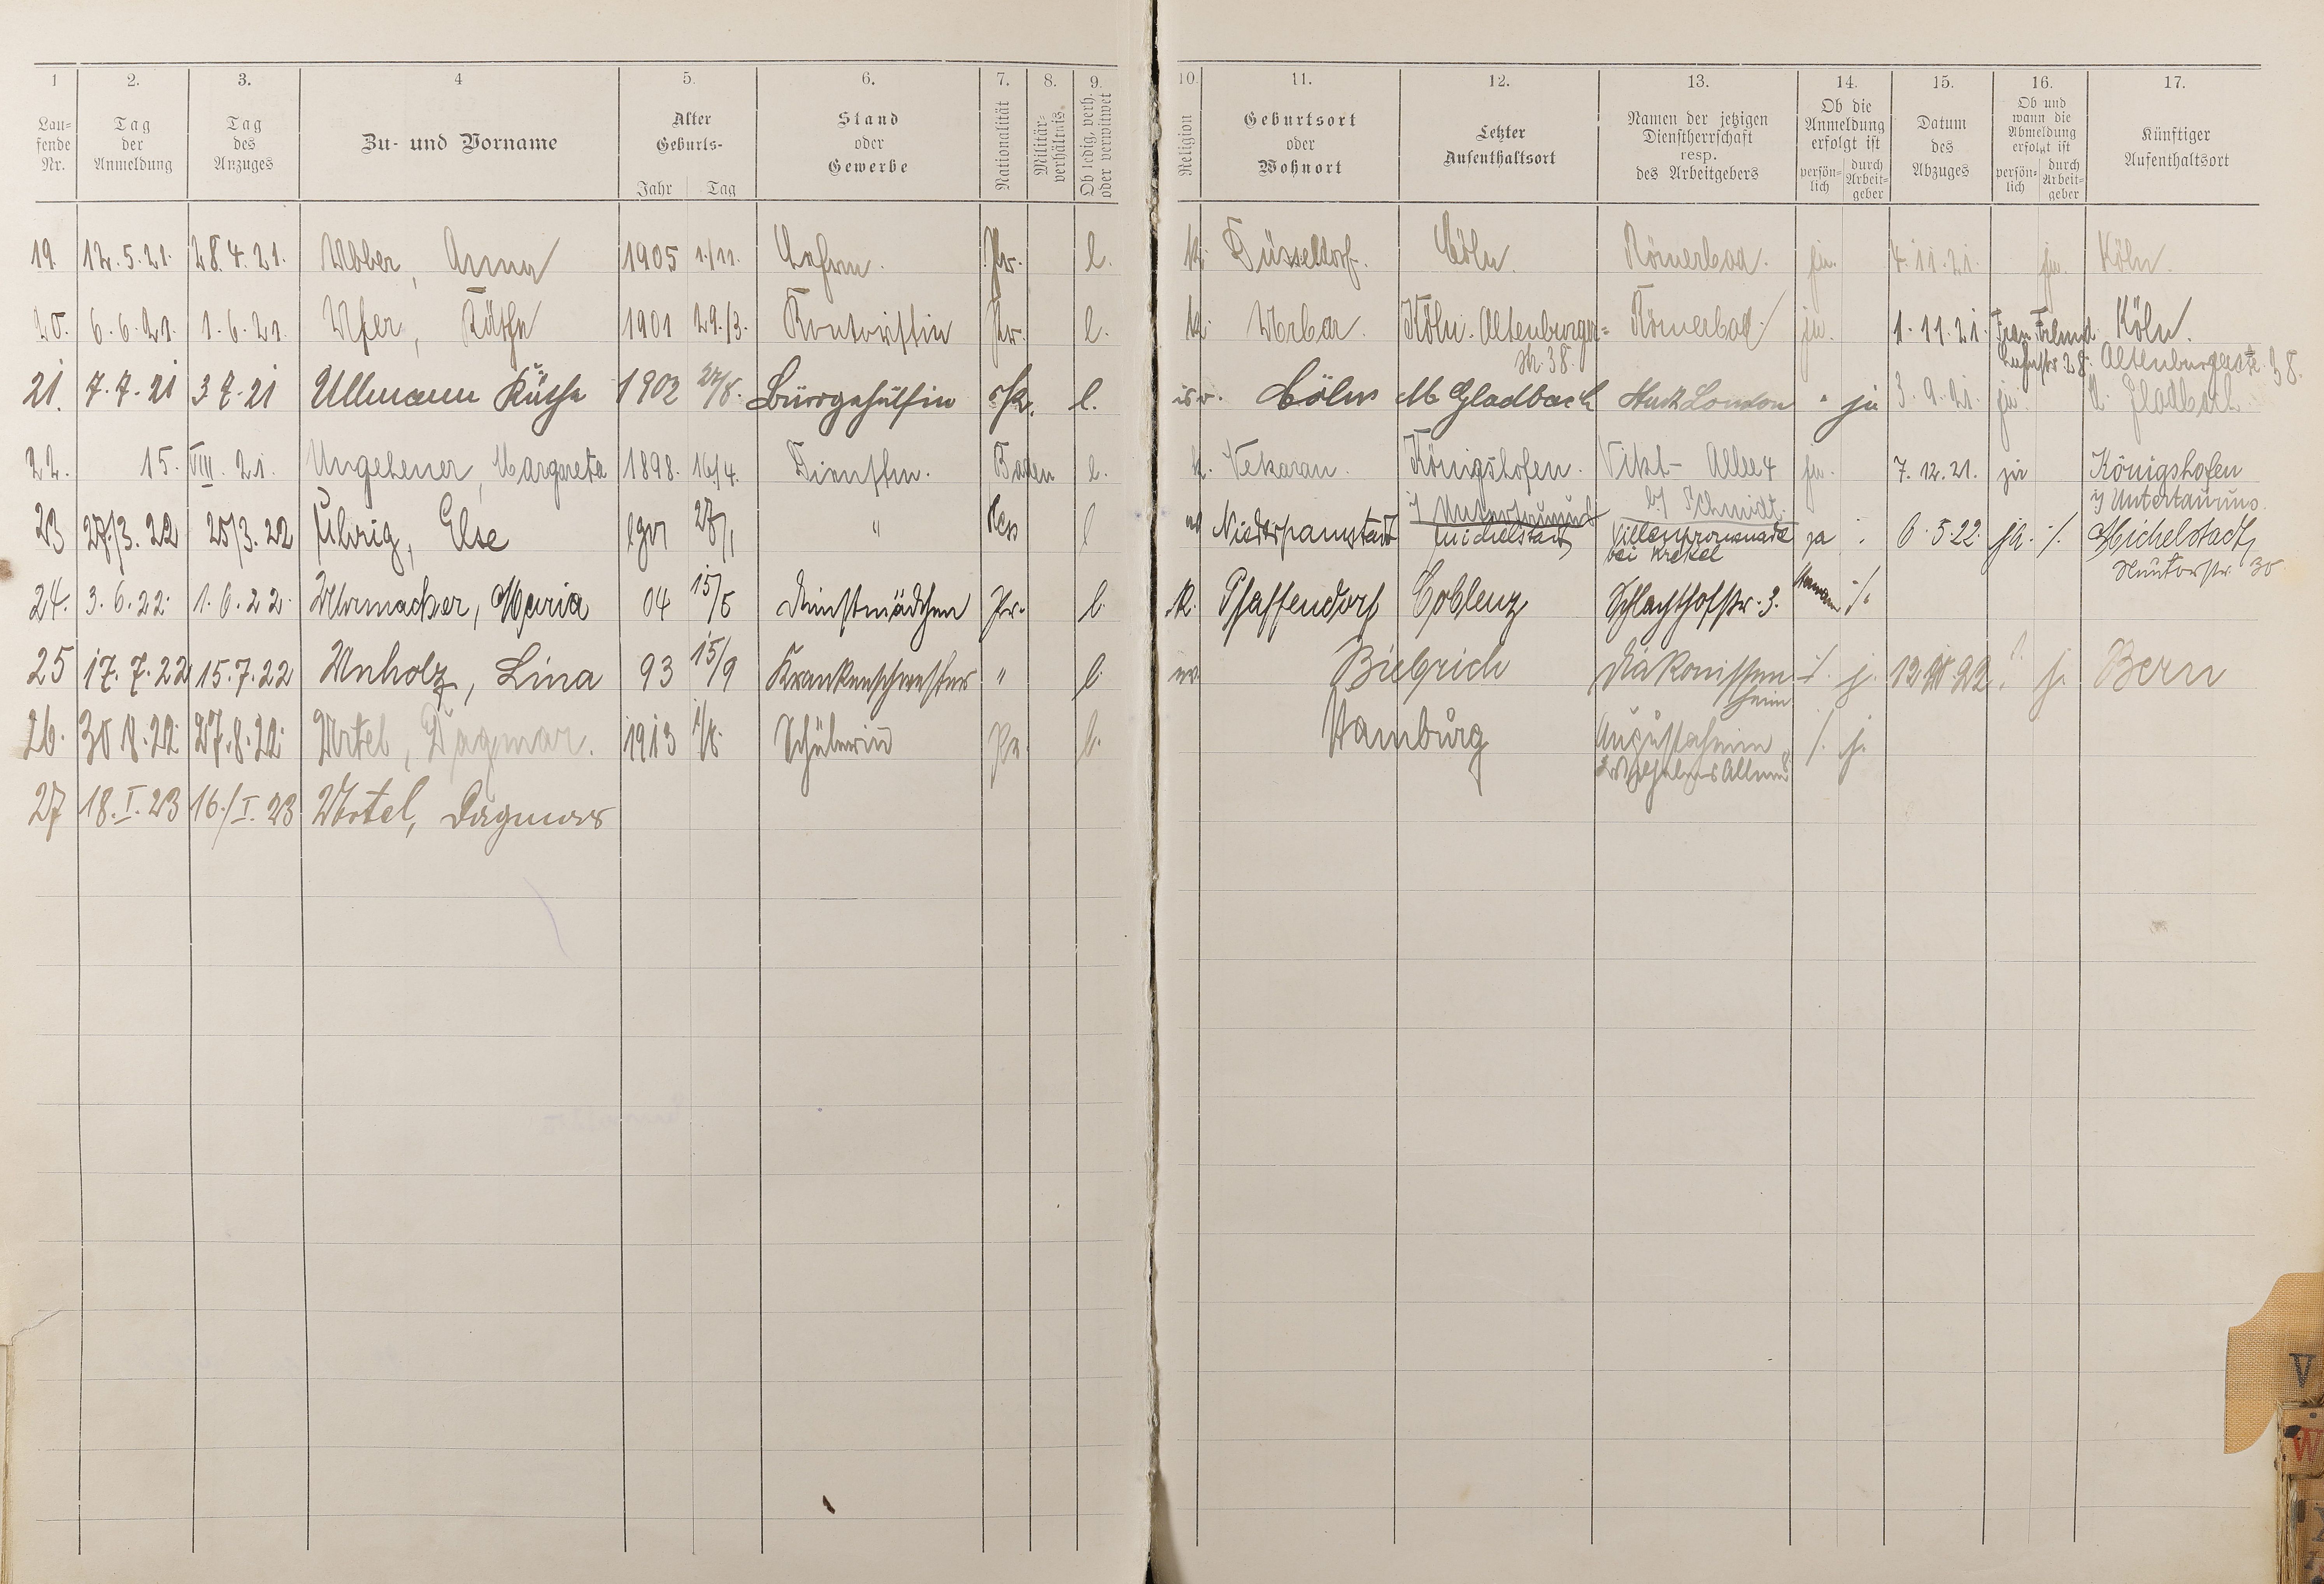 1 2. 3. 4 5. 6. 7. 8. 9. 10. 11. 12. 13. 14. 15. 16. 17.
Lau-
fende
Nr.
Tag
der
Anmeldung
Tag
des
Anzuges
Zu- und Vorname
Alter
Geburts-
Jahr Tag
Stand
oder
Gewerbe
Nationalität
Militär-
verhältnis.
Ob ledig, verh.
oder verwitwet
Religion
Geburtsort
oder
Wohnort
Letzter
Aufenthaltsort
Namen der jetzigen
Dienstherrschaft
resp.
des Arbeitgebers
Ob die
Anmeldung
erfolgt ist
persön-
lich
durch
Arbeit-
geber
Datum
des
Abzuges
Ob und
wann die
Abmeldung
erfolgt ist
persön-
lich
durch
Arbeit-
geber
Künftiger
Aufenthaltsort
19. 12.5.21. 28.4.21. Anna 1905 1./11. Pr. l. k. Düsseldorf. Cöln. Römerbad. ja. 4.11.21. ja. Köln.
20. 6.6.21. 1.6.21. Ufer, Käthe 1901 29./3. Kontoristin Pr. l. k. Urbar. Köln. Altenburger= Römerbad. ja. 1.11.21. Frau Köln.
str. 38. Altenburgerstr. 38.
21. 7.7.21 3 7.21 Ullmann Käthe 1902 Bürogehülfin Pr. l. isr. Cöln M Gladbach London " ja 3.9.21. ja M. Gladbach
22. 15. VIII. 21. Ungeheuer, Margareta 1898. 16/4. Dienstm. Baden l. k. Königshofen. Vikt- Allee 4 ja. 7.12.21. ja Königshofen
b/ Schmidt.
23 27/3.22 25/3.22 Uhrig, Else " Hess l Michelstadt Villenpromenade ja 6.5.22. ja. /. Michelstadt
bei Krekel
24. 3.6.22. 1.6.22. Uhrmacher, Maria 04 15/5 Dienstmädchen Pr. l. k. Pfaffendorf Coblenz Schlachthofstr. 3. /.
25 17.7.22 15.7.22 Unholz, Lina 93 15/9 Krankenschwester " l. ev. Biebrich Diakonissen /. j. j. Bern
heim
26. 30.8.22. 27.8.22. Urtel, Dagmar. 1913 Schülerin Pr. l. Hamburg Augustaheim /. j.
27 18.I.23 16./I.23 Urtel, Dagmar
V
W